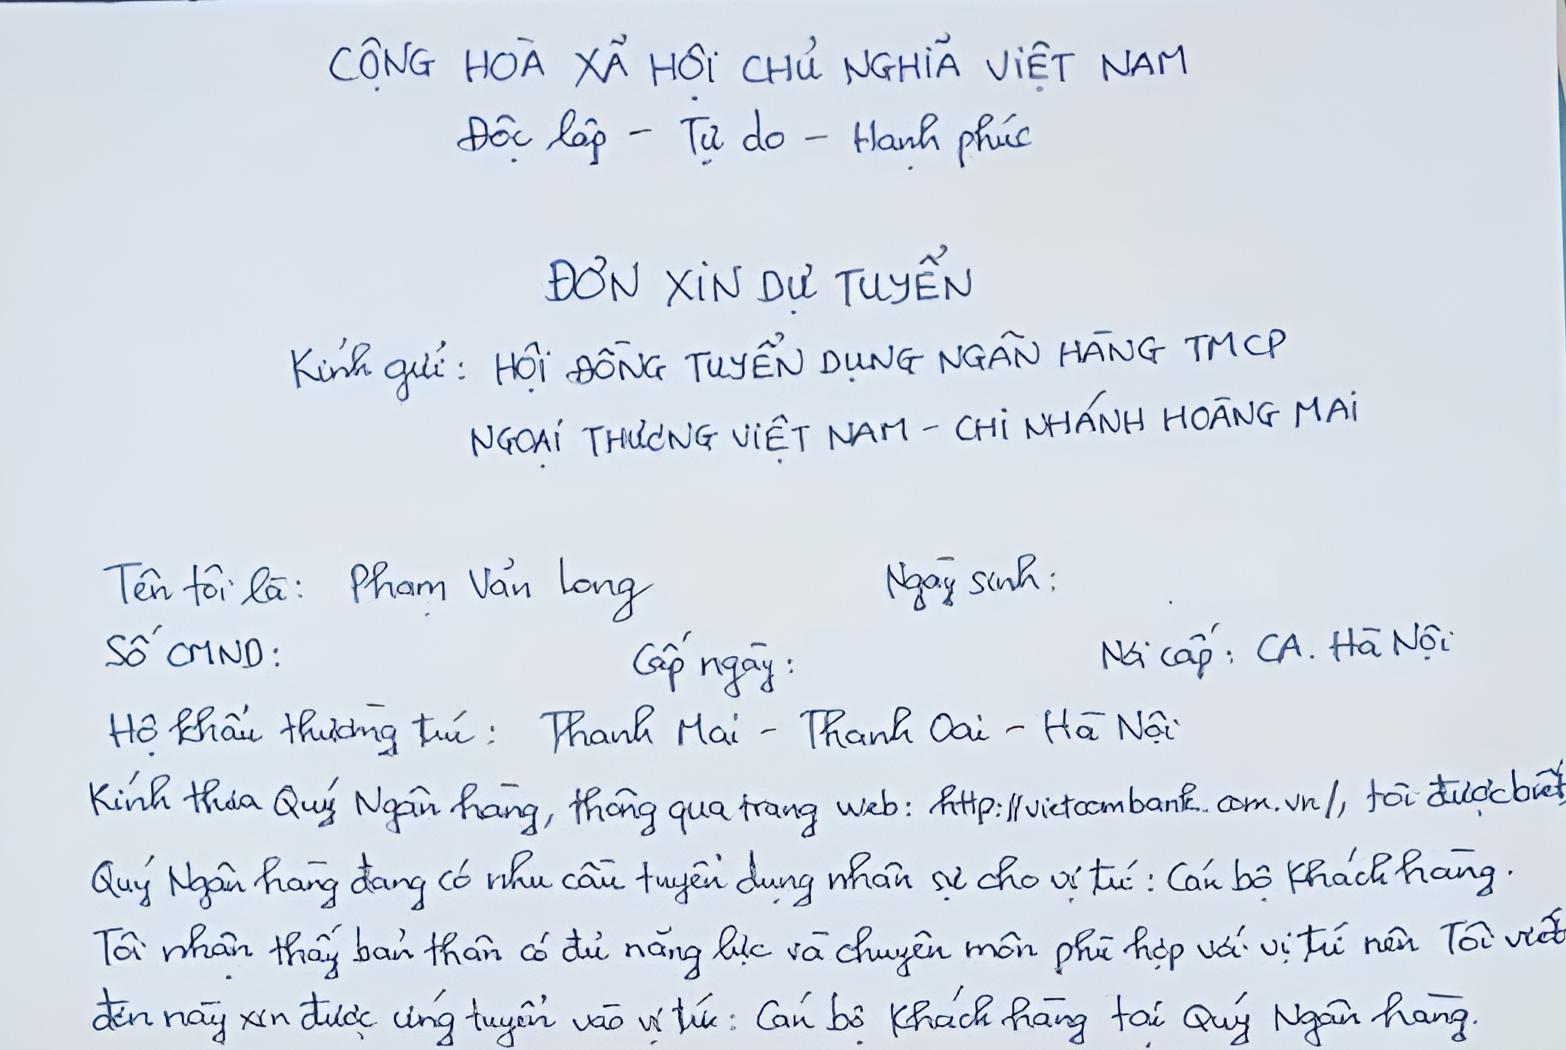 CỘNG HOÀ XÃ HỘI CHỦ NGHĨA VIỆT NAM
Độc lập - Tự do - Hạnh phúc
ĐƠN XIN DỰ TUYỂN
Kính gửi: HỘI ĐỒNG TUYỂN DỤNG NGÂN HÀNG TMCP
NGOẠI THƯƠNG VIỆT NAM - CHI NHÁNH HOÀNG MAI
Tên tôi là: Phạm Văn Long Ngày sinh:
Số CMND: Cấp ngày: Nơi cấp: CA. Hà Nội
Hộ khẩu thường trú: Thanh Mai - Thanh Oai - Hà Nội
Kính thưa Quý Ngân hàng, thông qua trang web: http://vietcombank.com.vn/, tôi được biết
Quý Ngân hàng đang có nhu cầu tuyển dụng nhân sự cho vị trí: Cán bộ Khách hàng.
Tôi nhận thấy bản thân có đủ năng lực và chuyên môn phù hợp với vị trí nên Tôi viết
đơn này xin được ứng tuyển vào vị trí: Cán bộ Khách hàng tại Quý Ngân hàng.